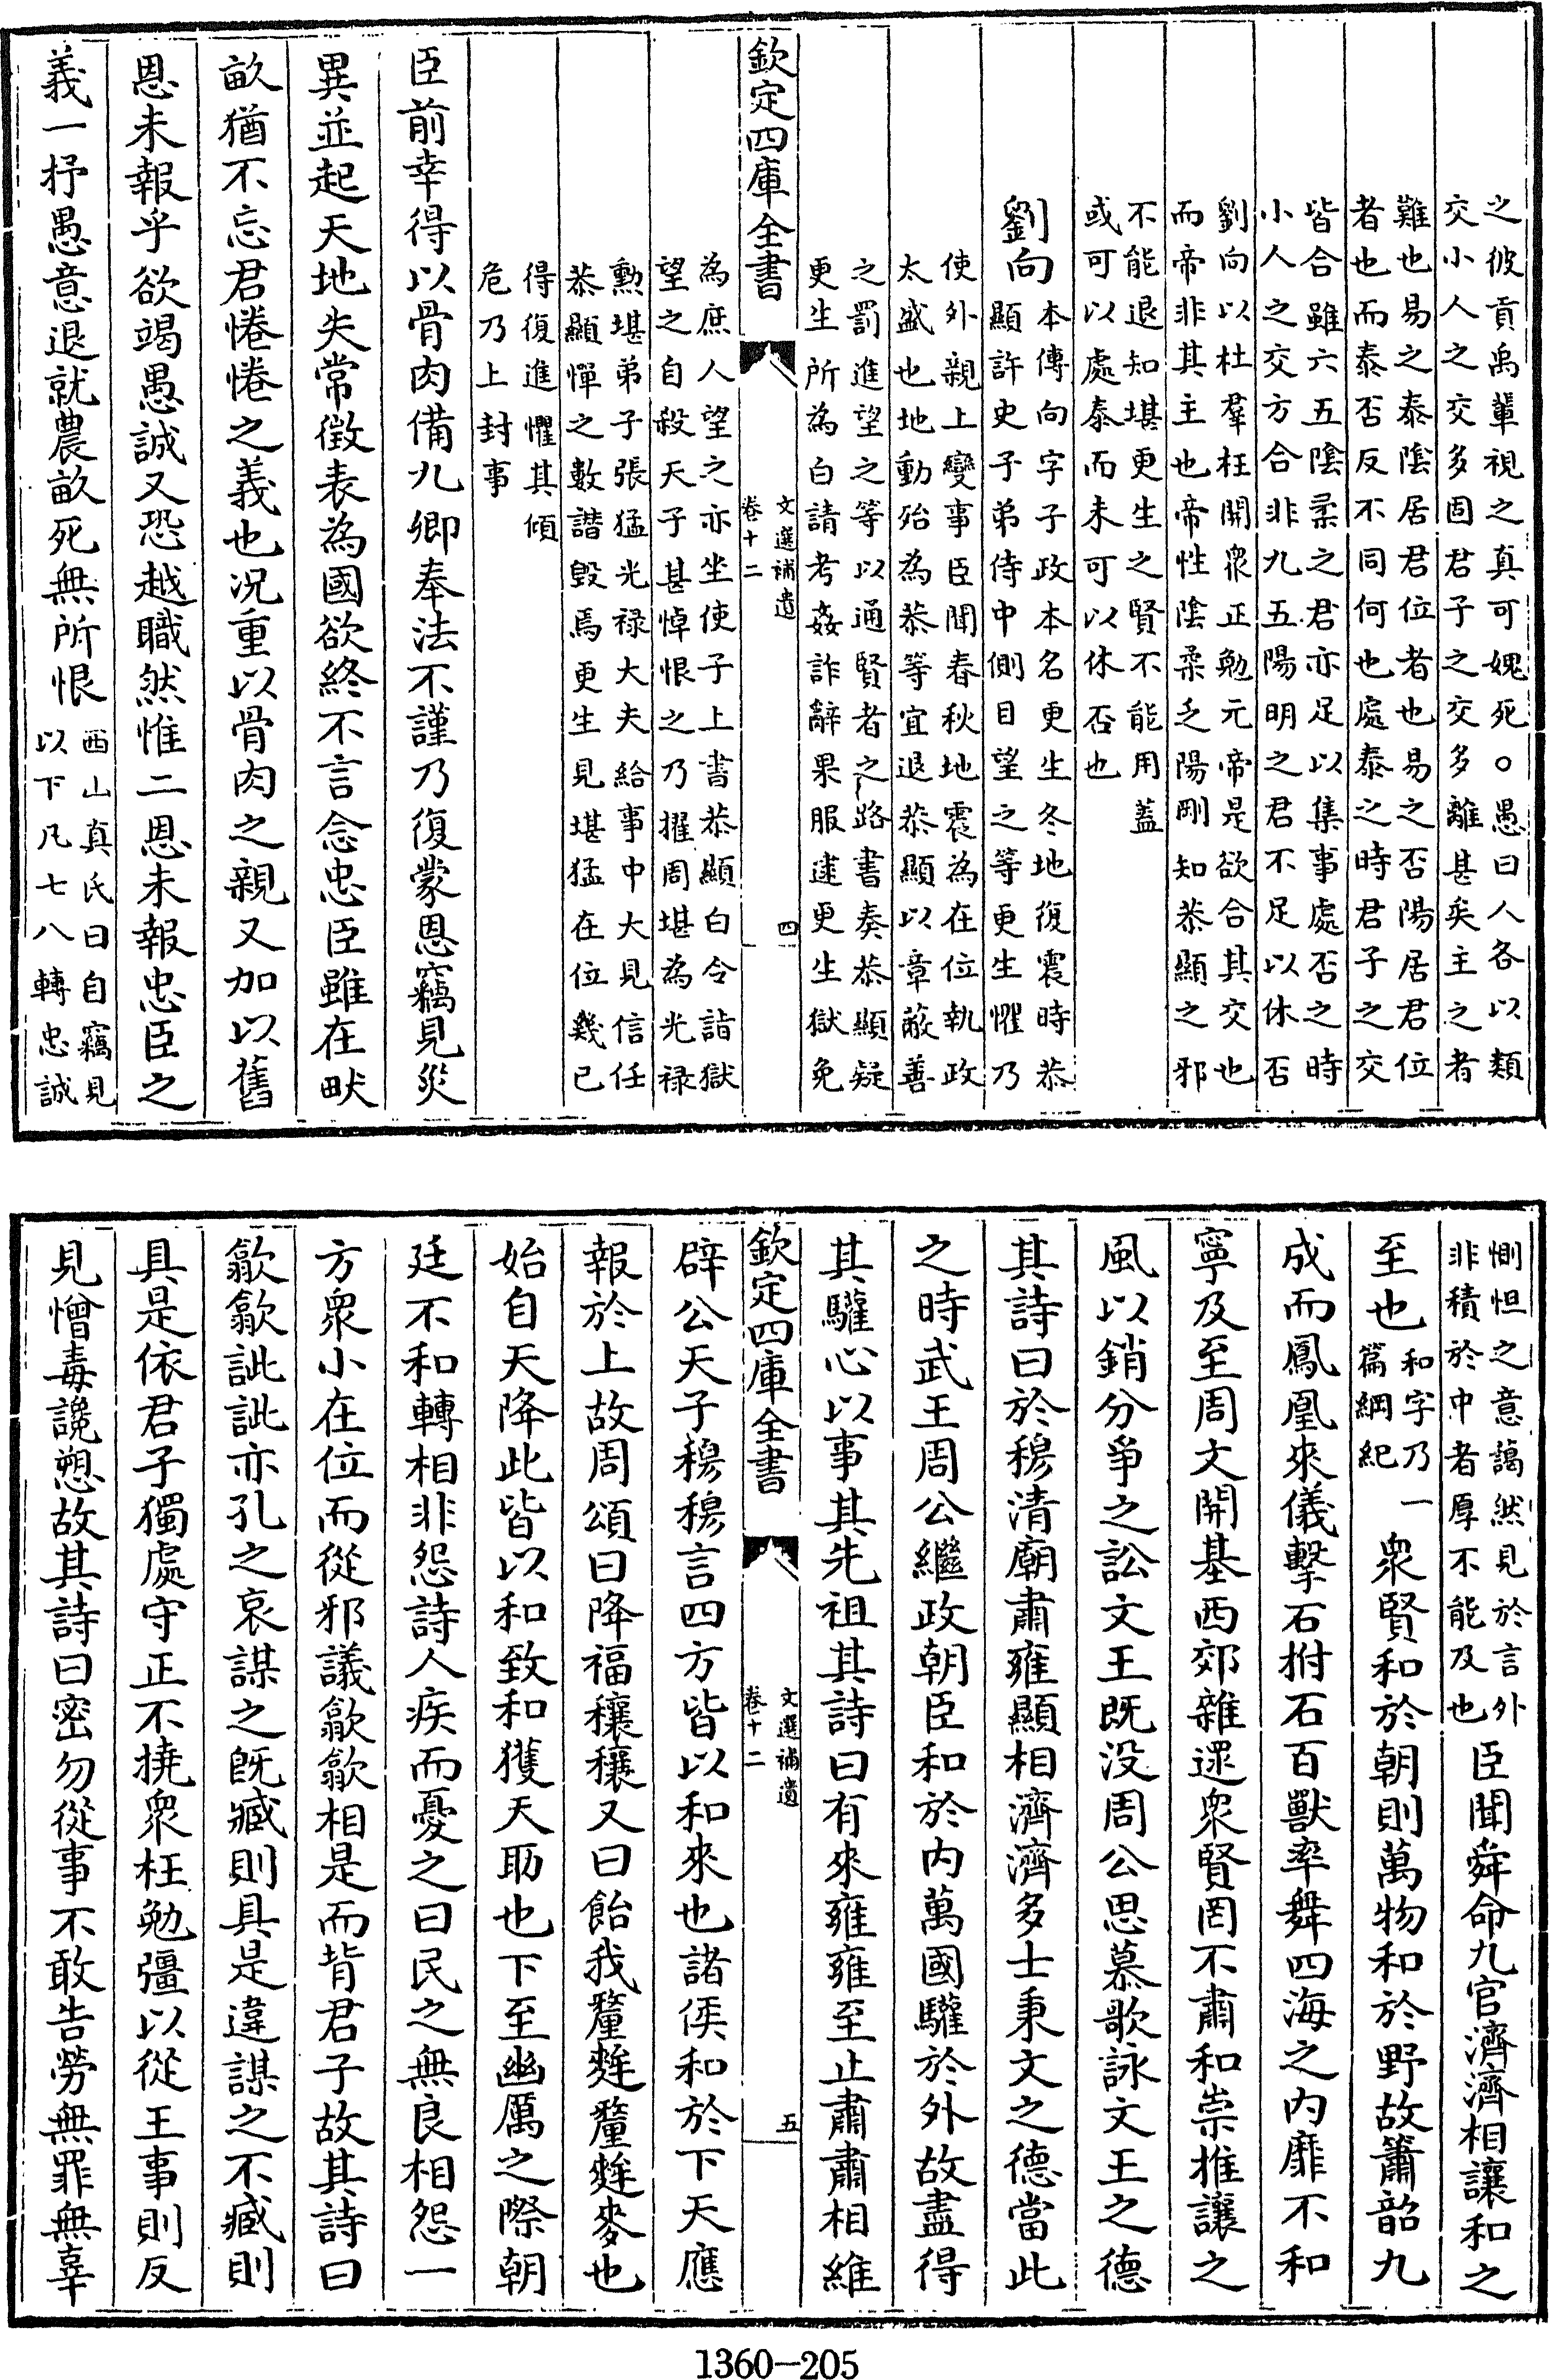 之彼貢禹輩視之真可媿死○愚曰人各以類
交小人之交多固君子之交多離甚矣主之者
難也易之泰陰居君位者也易之否陽居君位
者也而泰否反不同何也處泰之時君子之交
皆合雖六五陰柔之君亦足以集事處否之時
小人之交方合非九五陽明之君不足以休否
劉向以杜羣枉開衆正勉元帝是欲合其交也
而帝非其主也帝性陰柔乏陽剛知恭顯之邪
不能退知堪更生之賢不能用蓋
或可以處泰而未可以休否也
劉向
本傳向字子政本名更生冬地復震時恭
顯許史子弟侍中側目望之等更生懼乃
使外親上變事臣聞春秋地震為在位執政
太盛也地動殆為恭等宜退恭顯以章蔽善
之罰進望之等以通賢者之路書奏恭顯疑
更生所為白請考姦詐辭果服逮更生獄免
欽定四庫全書
文選補遺
卷十二
四
為庶人望之亦坐使子上書恭顯白令詣獄
望之自殺天子甚悼恨之乃擢周堪為光禄
勲堪弟子張猛光禄大夫給事中大見信任
恭顯憚之數譖毁焉更生見堪猛在位幾已
得復進懼其傾
危乃上封事
臣前幸得以骨肉備九卿奉法不謹乃復蒙恩竊見災
異並起天地失常徵表為國欲終不言念忠臣雖在畎
畝猶不忘君惓惓之義也况重以骨肉之親又加以舊
恩未報乎欲竭愚誠又恐越職然惟二恩未報忠臣之
義一抒愚意退就農畝死無所恨
西山真氏曰自竊見
以下凡七八轉忠誠
惻怛之意藹然見於言外
非積於中者厚不能及也
臣聞舜命九官濟濟相讓和之
至也
和字乃一
篇綱紀
衆賢和於朝則萬物和於野故簫韶九
成而鳳凰來儀擊石拊石百獸率舞四海之内靡不和
寧及至周文開基西郊雜遝衆賢罔不肅和崇推讓之
風以銷分爭之訟文王既没周公思慕歌詠文王之德
其詩曰於穆清廟肅雍顯相濟濟多士秉文之德當此
之時武王周公繼政朝臣和於内萬國驩於外故盡得
其驩心以事其先祖其詩曰有來雍雍至止肅肅相維
欽定四庫全書
文選補遺
卷十二
五
辟公天子穆穆言四方皆以和來也諸侯和於下天應
報於上故周頌曰降福穰穰又曰飴我釐麰釐麰麥也
始自天降此皆以和致和獲天助也下至幽厲之際朝
廷不和轉相非怨詩人疾而憂之曰民之無良相怨一
方衆小在位而從邪議歙歙相是而背君子故其詩曰
歙歙訿訿亦孔之哀謀之旣臧則具是違謀之不臧則
具是依君子獨處守正不撓衆枉勉彊以從王事則反
見憎毒讒愬故其詩曰密勿從事不敢告勞無罪無辜
1360-205